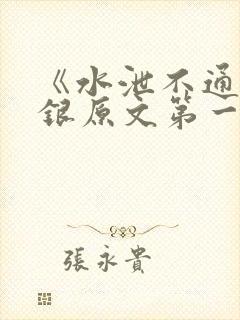 《水泄不通
银原文第一
張永貴